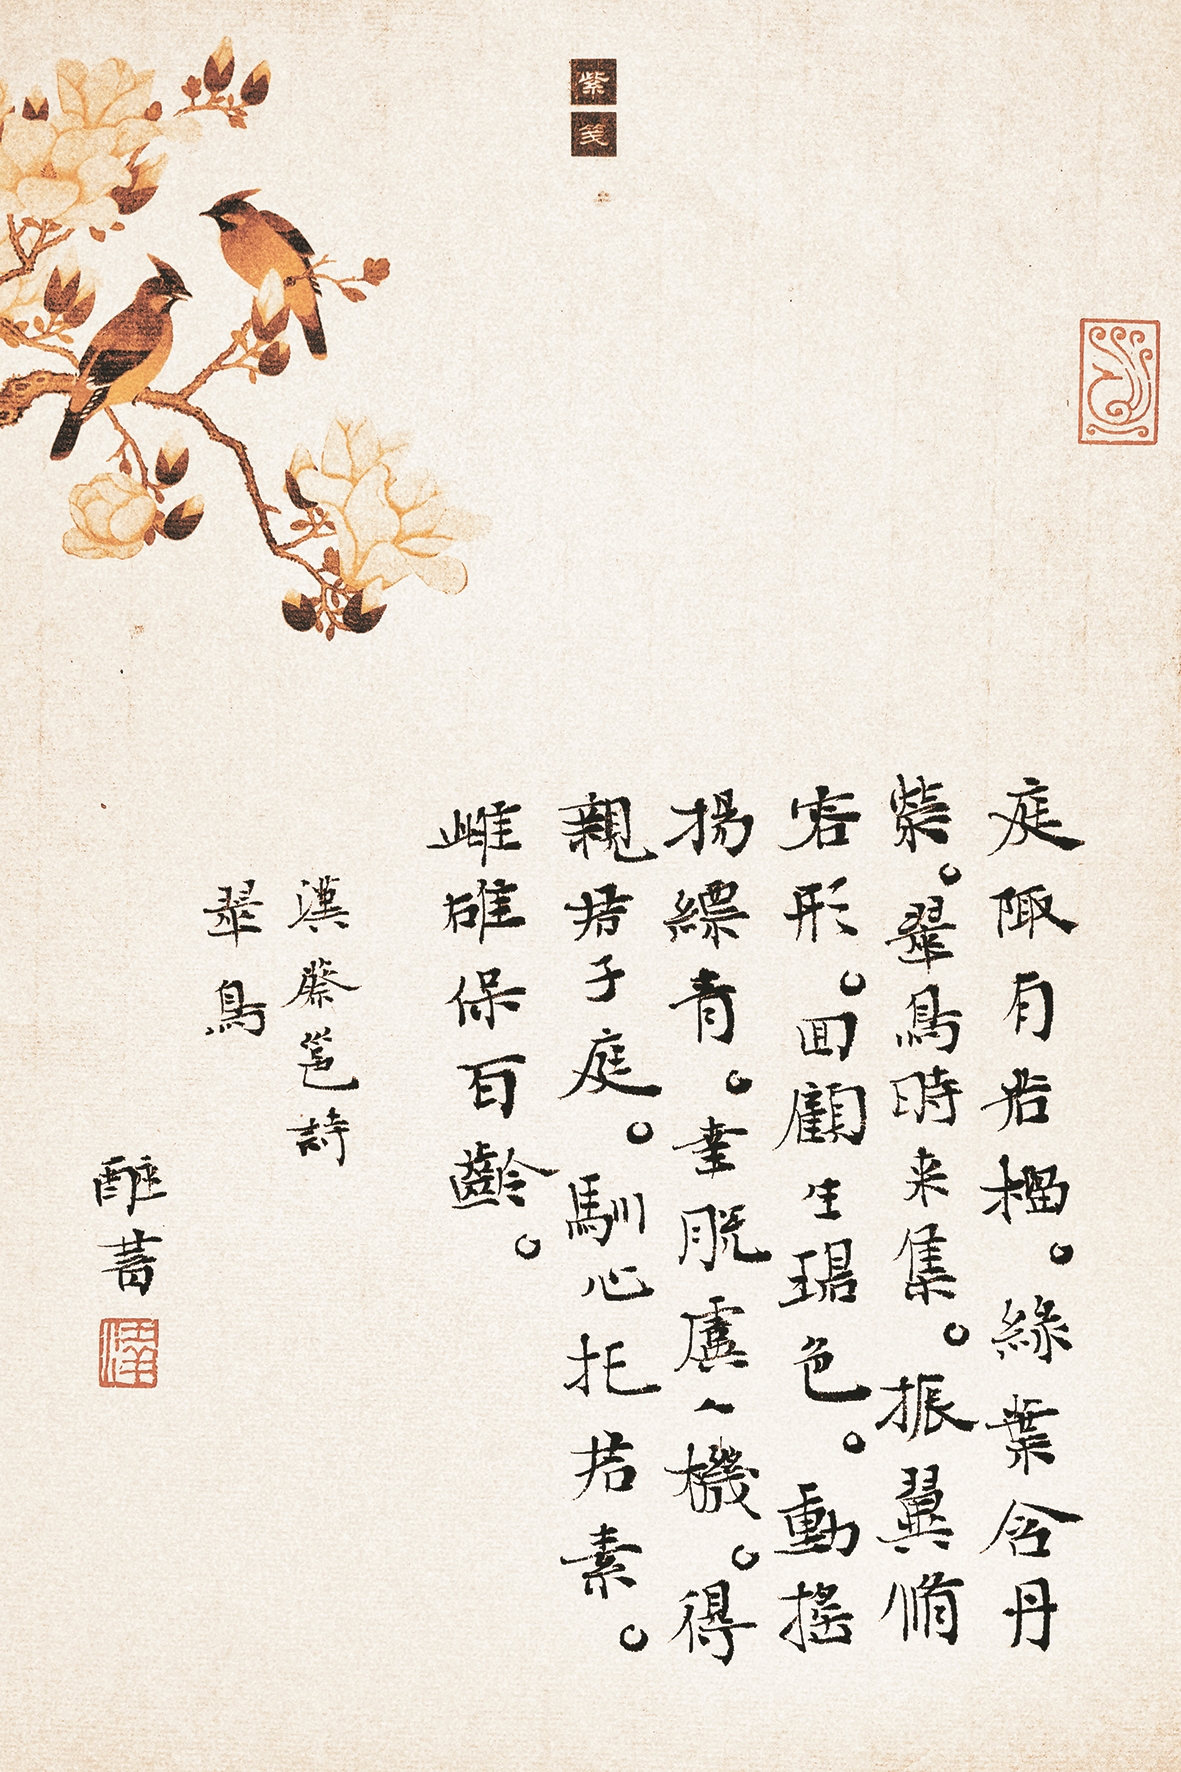 紫笺
庭陬有若榴。綠葉含丹
榮。翠鳥時来集。振翼脩
容形。回顧生碧色。動搖
揚縹青。幸脫虞人機。得
親君子庭。馴心托君素。
雌雄保百齡。
漢蔡邕詩
翠鳥